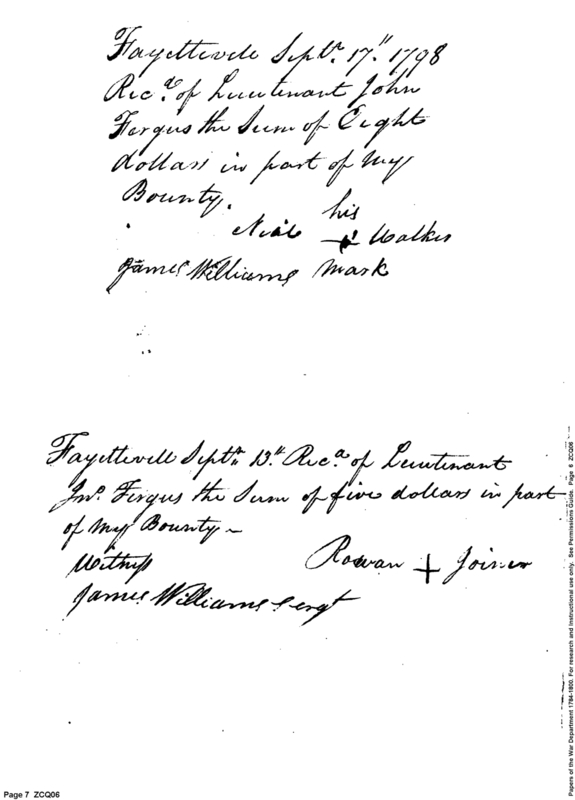 Fayetteville Septr. 17th. 1798
Recd. of Lieutenant John
Fergus the Sum of Eight
dollars in part of my
Bounty.
his
Neil + Walker
James Williams mark
Fayettevill Septr. 13th. Recd. of Lieutenant
Jno. Fergus the Sum of five dollars in part
of my Bounty ~
Witness Rowan + Joiner
James Williams Sergt
Page 7 ZCQ06
Papers of the War Department 1784-1800. For research and instructional use only. See Permissions Guide. Page 6 ZCQ06